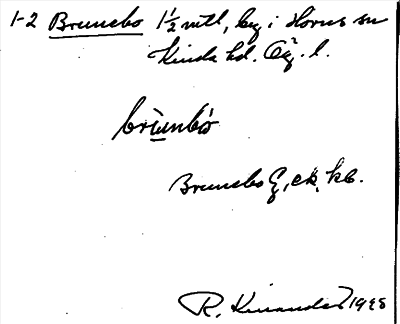 1-2 Brunebo 1½ mtl, by i Horns sn
Kinda hd. Ög. l.
brùnbó
Brunebo G, ek. kb.
R. Kinander 1928